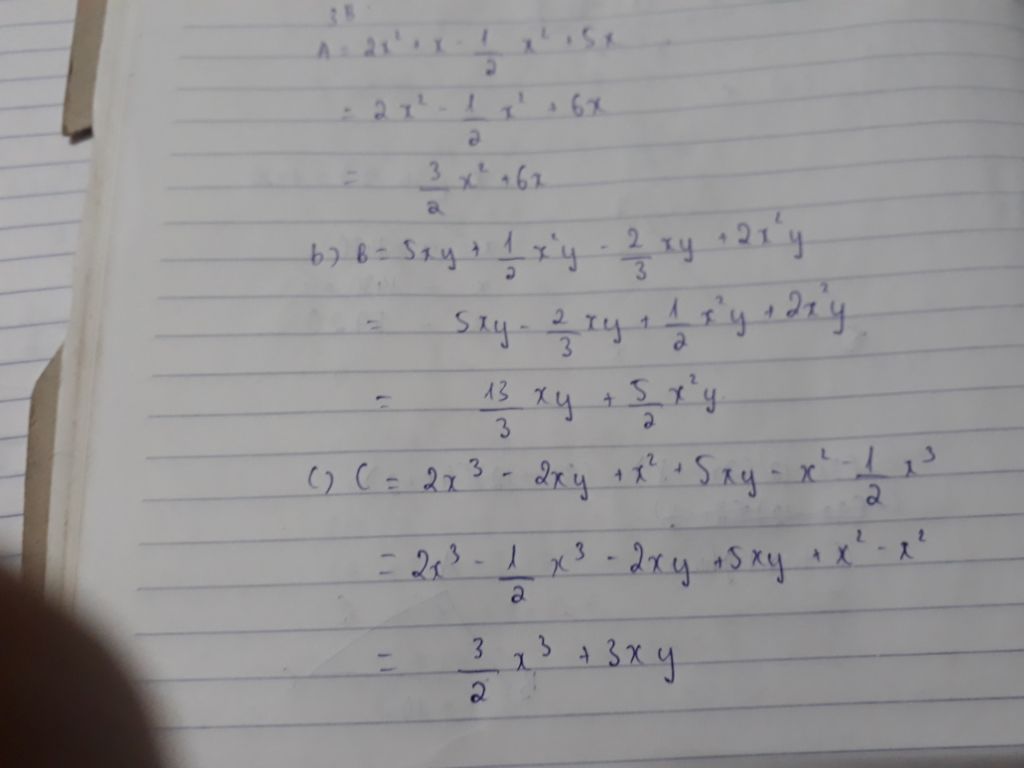 3B
A = 2x² + x - 1/2 x² + 5x
= 2x² - 1/2 x² + 6x
= 3/2 x² + 6x
b) B = 5xy + 1/2 x²y - 2/3 xy + 2x²y
= 5xy - 2/3 xy + 1/2 x²y + 2x²y
= 13/3 xy + 5/2 x²y
c) C = 2x³ - 2xy + x² + 5xy - x² - 1/2 x³
= 2x³ - 1/2 x³ - 2xy + 5xy + x² - x²
= 3/2 x³ + 3xy